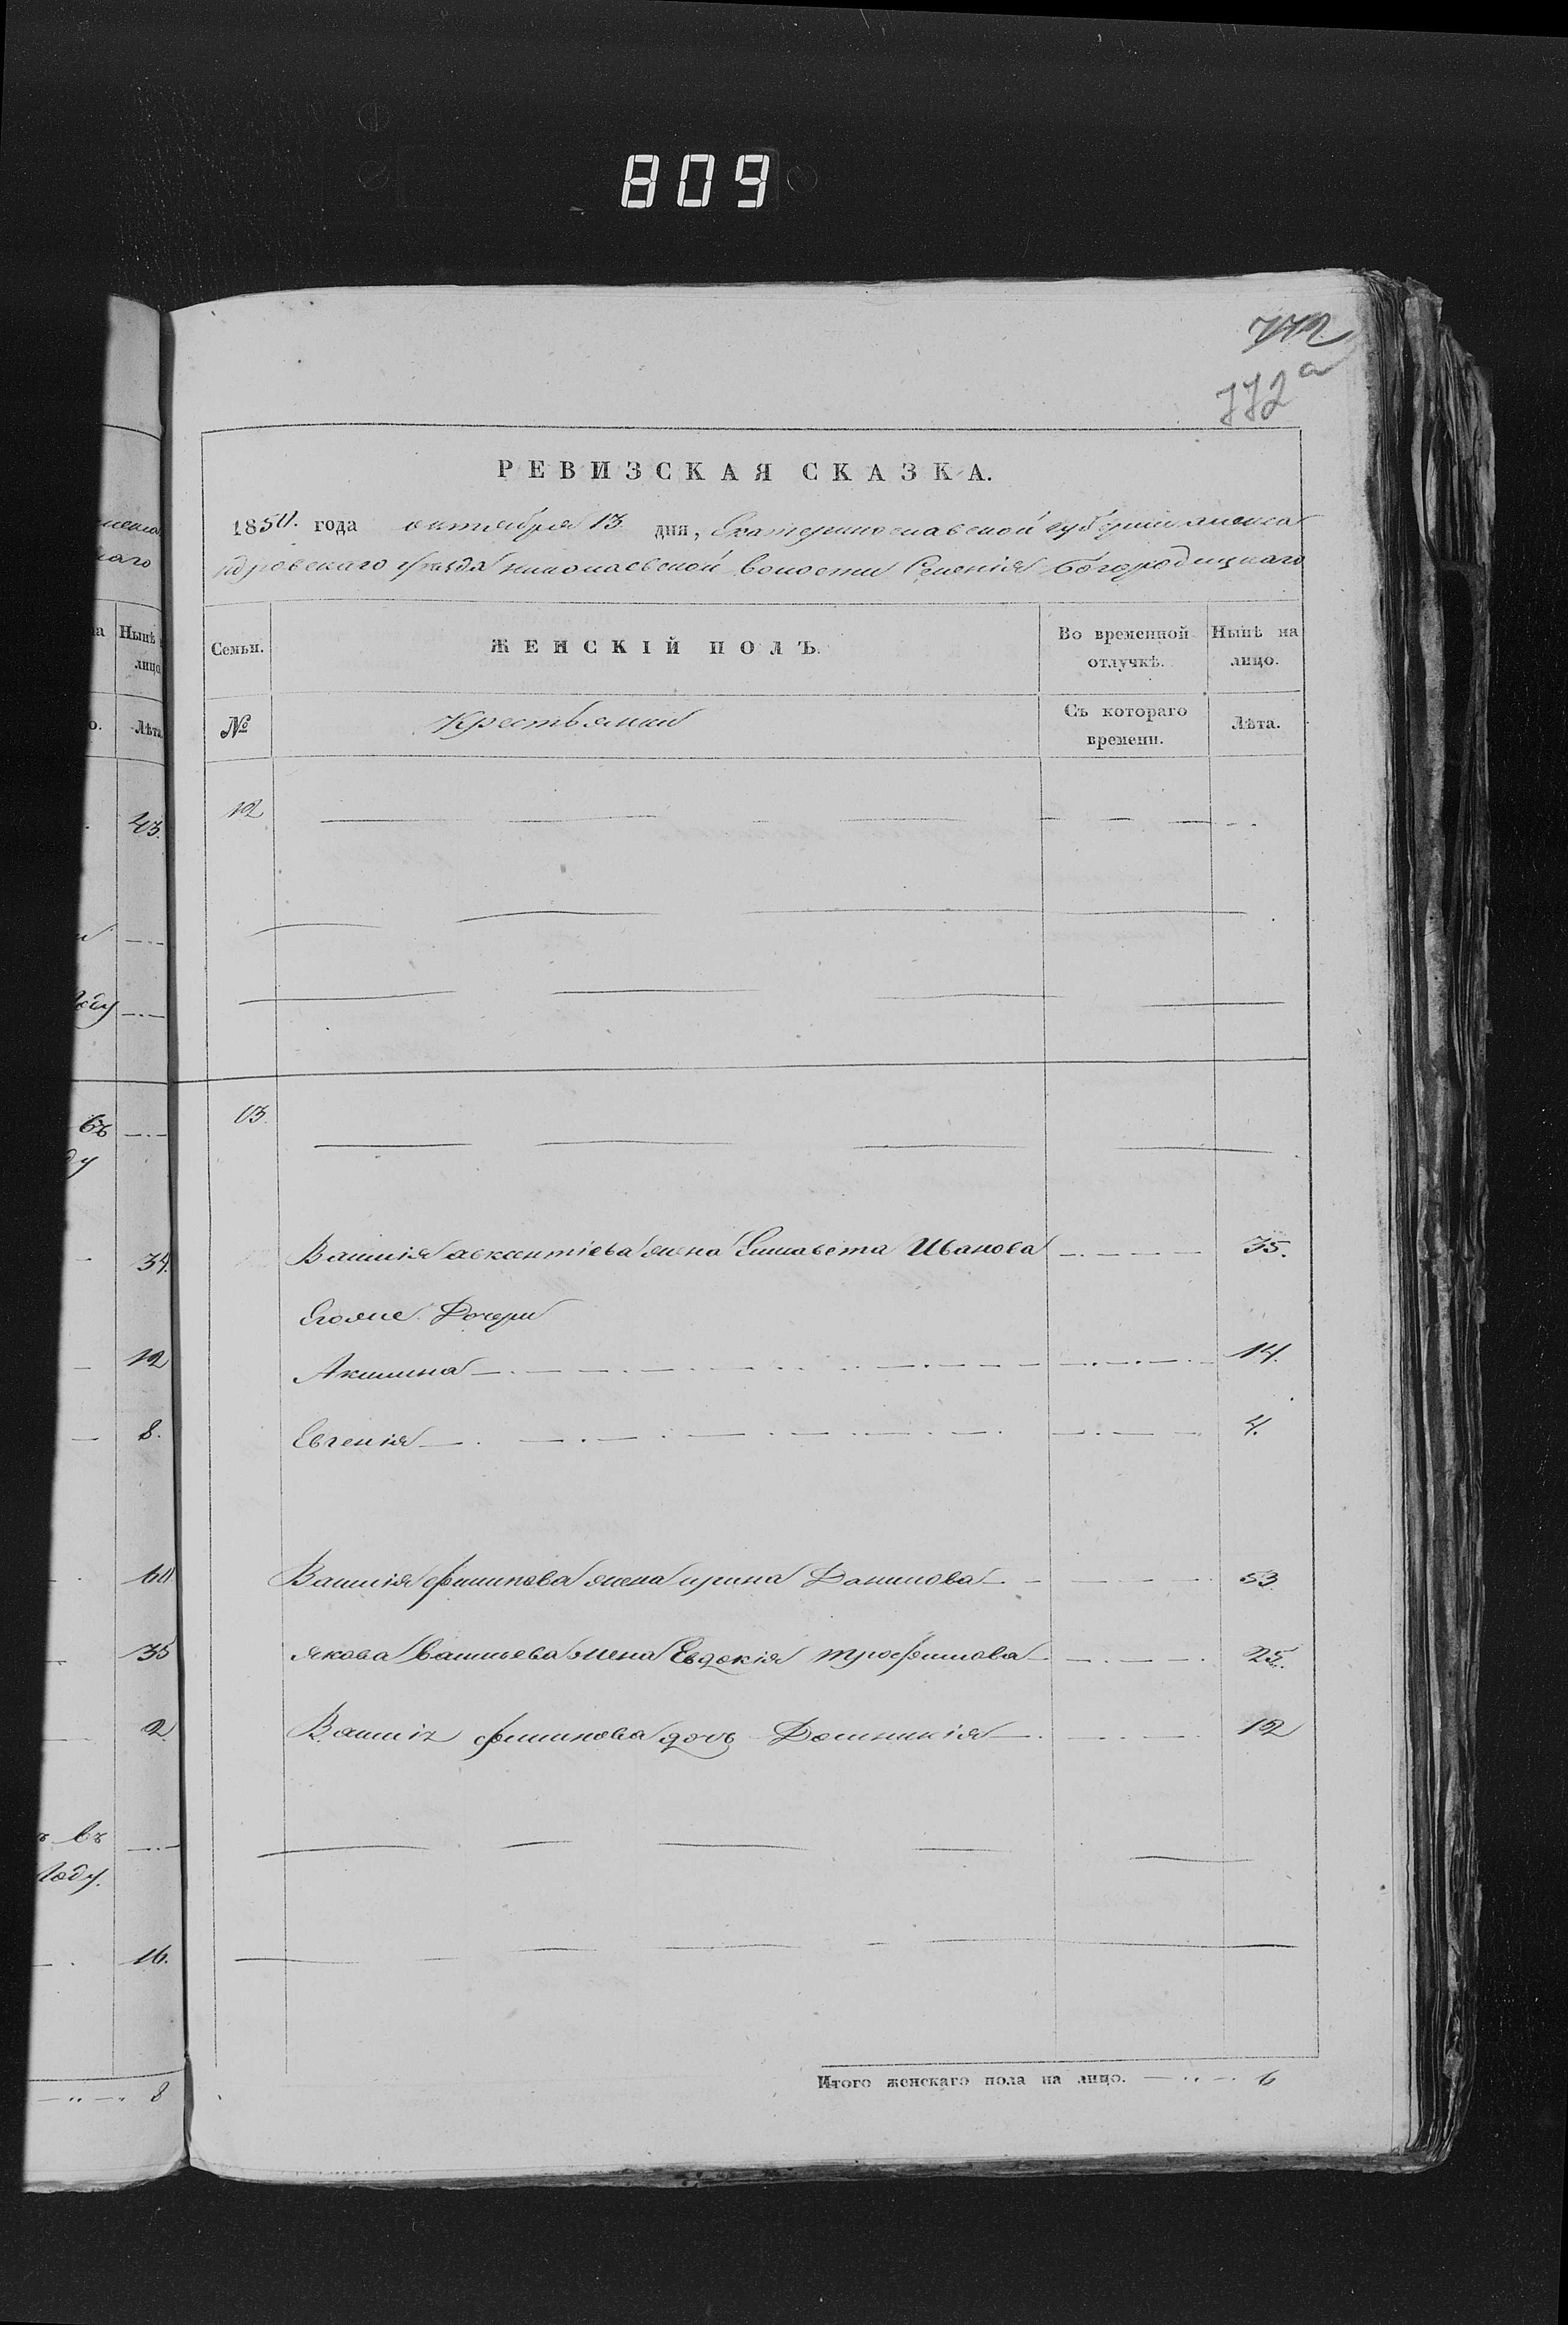 809
772
772 а
РЕВИЗСКАЯ СКАЗКА.
1850. года октября 13 дня, Екатеринославской губернии алекса
ндровскаго уезда николаевской волости Селенія богородицкаго
Семьи. ЖЕНСКІЙ ПОЛЪ. Во временной отлучкѣ. Нынѣ на лицо.
№ Крестьянки Съ котораго времени. Лѣта.
12
13.
Василія авксентіева жена Елисавета Иванова 35.
Егоже Дочери
Акилина 14.
Евгенія 4.
Василія филипова жена ирина Данилова 53
якова васильева жена Евдокія трофимова 25.
Василія филипова дочь Домникія 12
Итого женскаго пола на лицо. 6
Нынѣ
лицо
Лѣта
43.
34.
12
8.
60
35
2.
въ
году.
16.
8